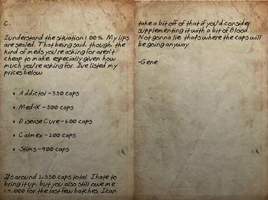 C.
I understand the situation 100%. My lips
are sealed. That being said, though, the
kind of meds you're asking for aren't
cheap to make, especially given how
much you're asking for. I've listed my
prices below.
• Addictol - 350 caps
• Med-X - 500 caps
• Disease Cure - 600 caps
• Calmex - 200 caps
• Stims - 900 caps
It's around 2,550 caps total. I hate to
bring it up, but you also still owe me
for the last few batches. I can
take a bit off of that if you'd consider
supplementing it with a bit of blood.
Not gonna lie, that's where the caps will
be going anyway.
-Gene